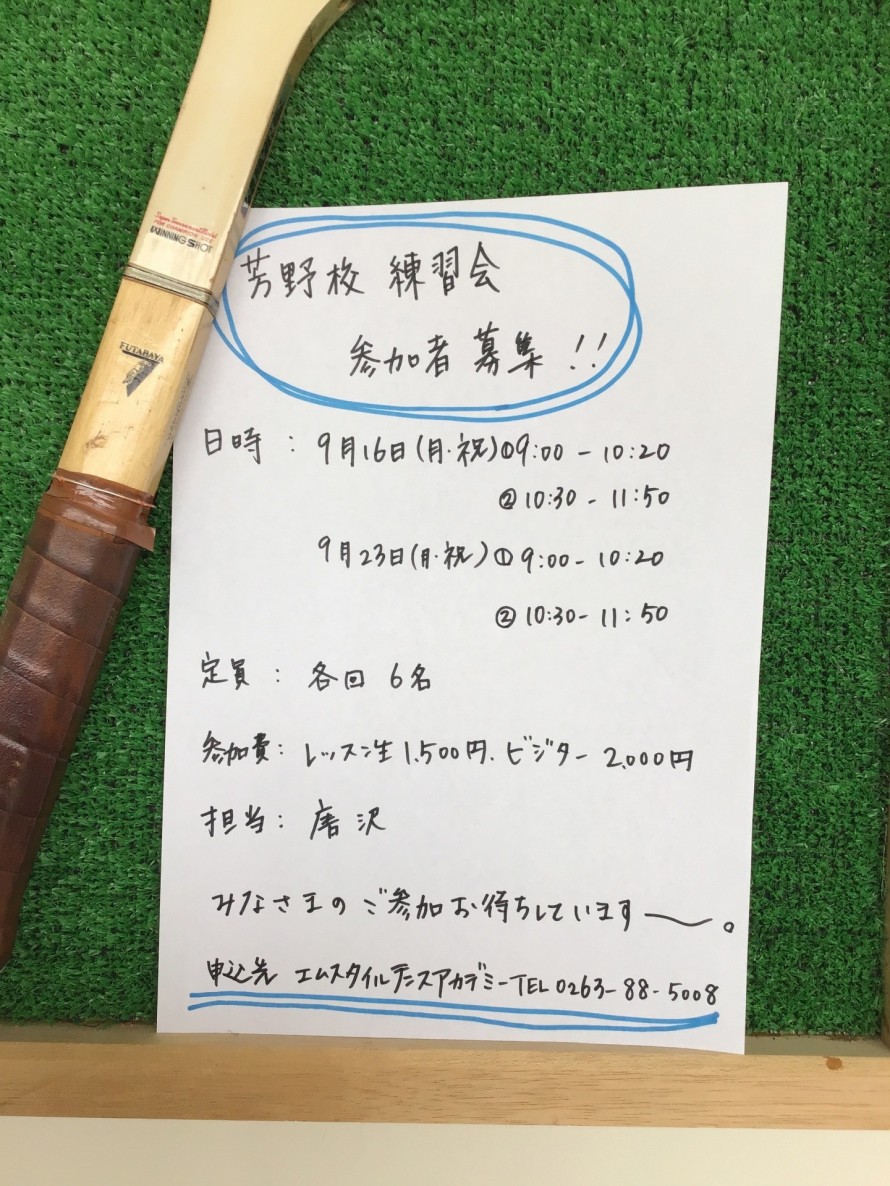 FOR CHAMPION USE
WINNING SHOT
FUTABAYA
芳野校 練習会
参加者 募集!!
日時: 9月16日(月・祝)①9:00-10:20
②10:30-11:50
9月23日(月・祝)①9:00-10:20
②10:30-11:50
定員: 各回 6名
参加費: レッスン生1,500円、ビジター 2,000円
担当: 唐沢
みなさまの ご参加お待ちしています〜。
申込先 エムスタイルテニスアカデミーTEL0263-88-5008